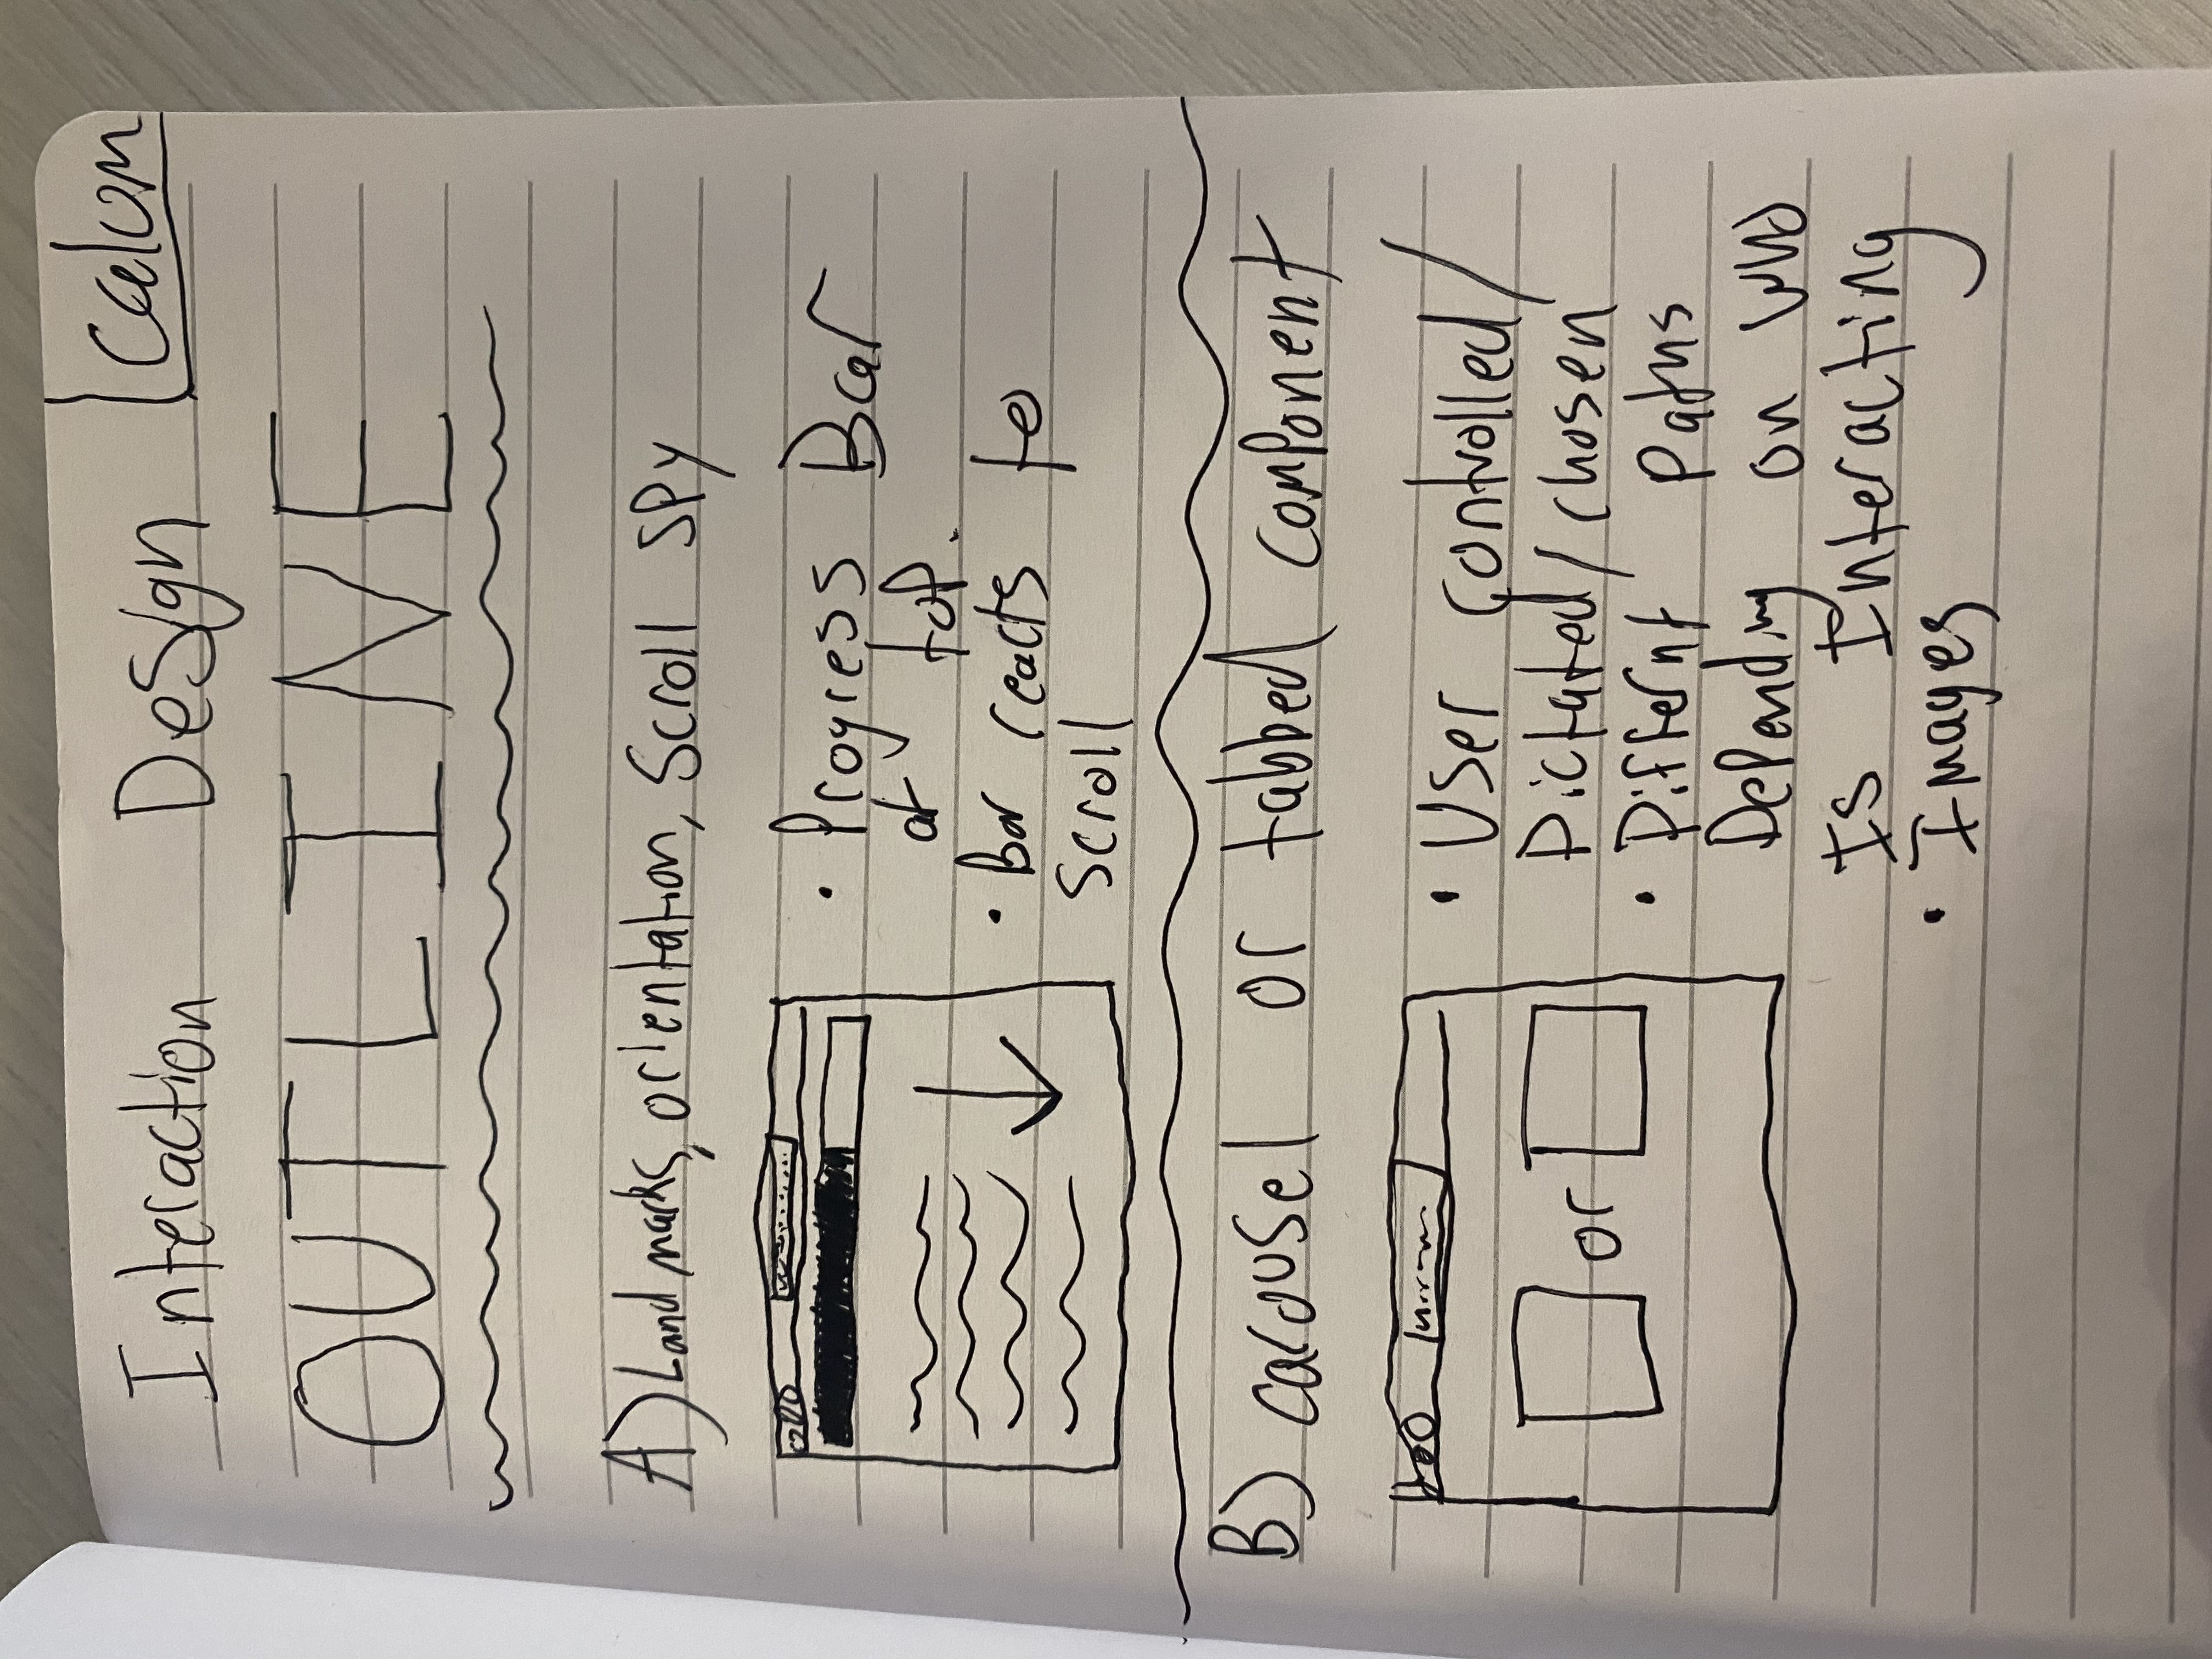 Interaction Design
Calum
OUTLINE
A) Landmarks, orientation, Scroll SPy
• Progress Bar
at top.
• Bar reacts to
Scroll
B) carousel or tabbed component
or
• User controlled/
Dictated/chosen
• Differnt Paths
Depending on who
Is Interacting
• Images